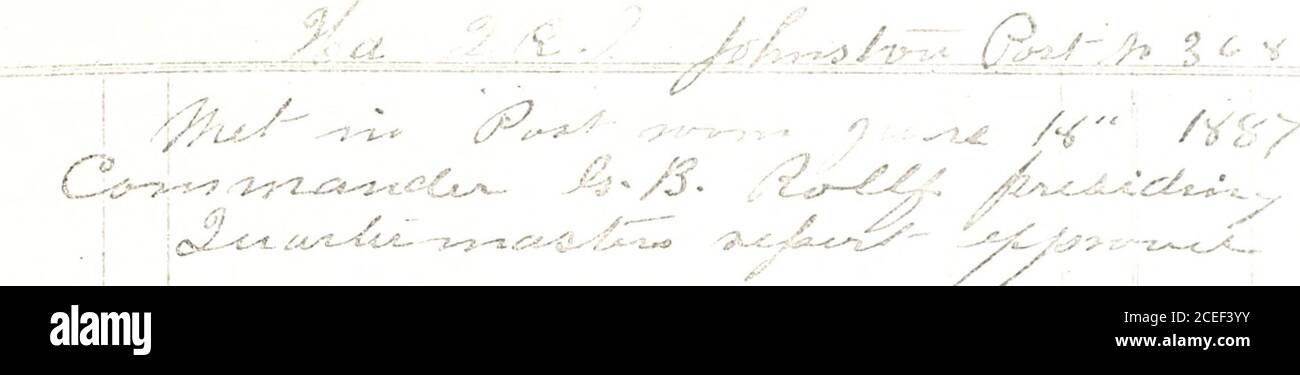 Johnston Post No 368
Met in Post room June 18" 1887
Commander G. B. Rolfe presiding
Quartermasters report approved
alamy
Image ID: 2CEF3YY
www.alamy.com